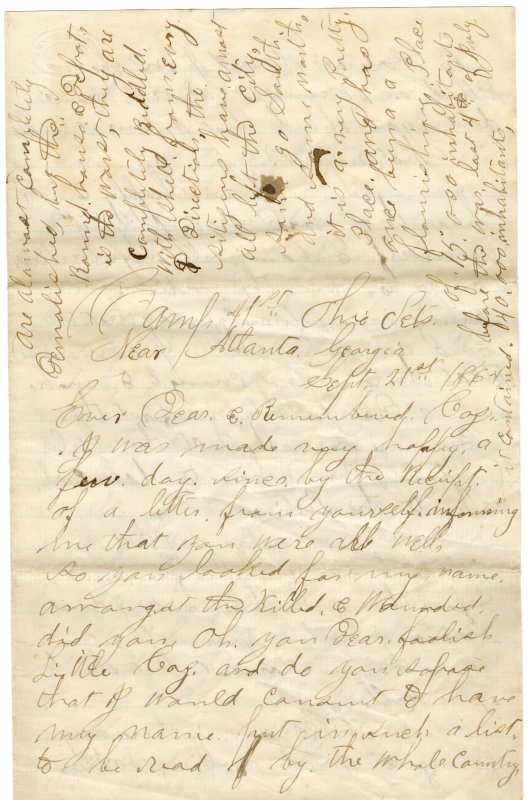 Camp 41st Ohio Vets.
Near Atlanta Georgia
Sept. 21st 1864
Ever Dear & Remembered Coz,
I was made very happy, a
few day. since by the Receipt.
of a letter from yourself. informing
me that you were all well.
So you looked for my name.
amongst the Killed, & Wounded.
did you, Oh, you Dear. foolish
Little Coz, and do you sopose
that I would consent to have
my name put in such a list.
to be read by. the whole Country,
are almost completely
Demolished, but the
Round house, & Depots
is the worst, they are
completely Riddled.
with shells from Evry
Direction, the
sitizens have amost
all left the City
Some go South.
and some north
it is a very Pretty.
Place. and has
once been a
flourishing Place
of 15,000 inhabitants
before the war. last 4th of July
it contained. 40,000 inhabitants,